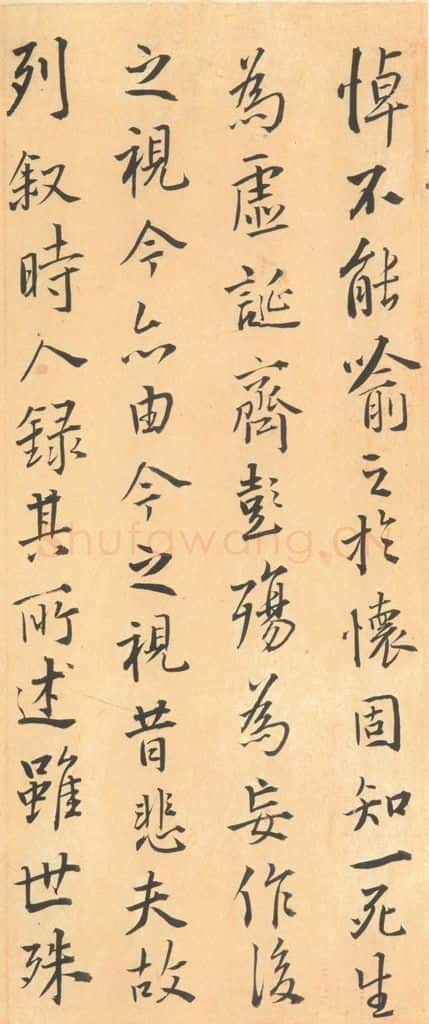 悼不能喻之於懷固知一死生
為虛誕齊彭殤為妄作後
之視今亦由今之視昔悲夫故
列叙時人録其所述雖世殊
shufawang.CN